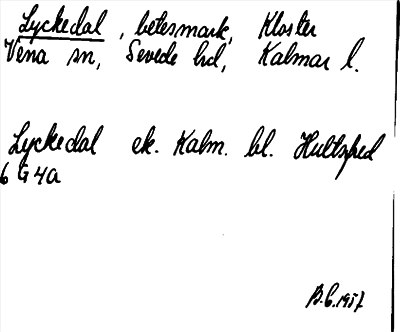 Lyckedal, betesmark, Kloster
Vena sn, Sevede hd, Kalmar l.
Lyckedal ek. Kalm. bl. Hultsfred
6 G 4a
B.G. 1957